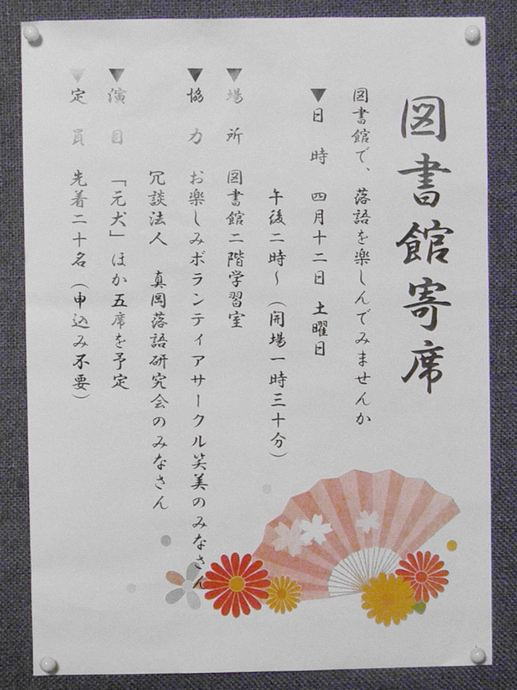 図書館寄席
図書館で、落語を楽しんでみませんか
▼日　時　四月十二日　土曜日
午後二時～（開場一時三十分）
▼場　所　図書館二階学習室
▼協　力　お楽しみボランティアサークル笑美のみなさん
冗談法人　真岡落語研究会のみなさん
▼演　目　「元犬」ほか五席を予定
▼定　員　先着二十名（申込み不要）